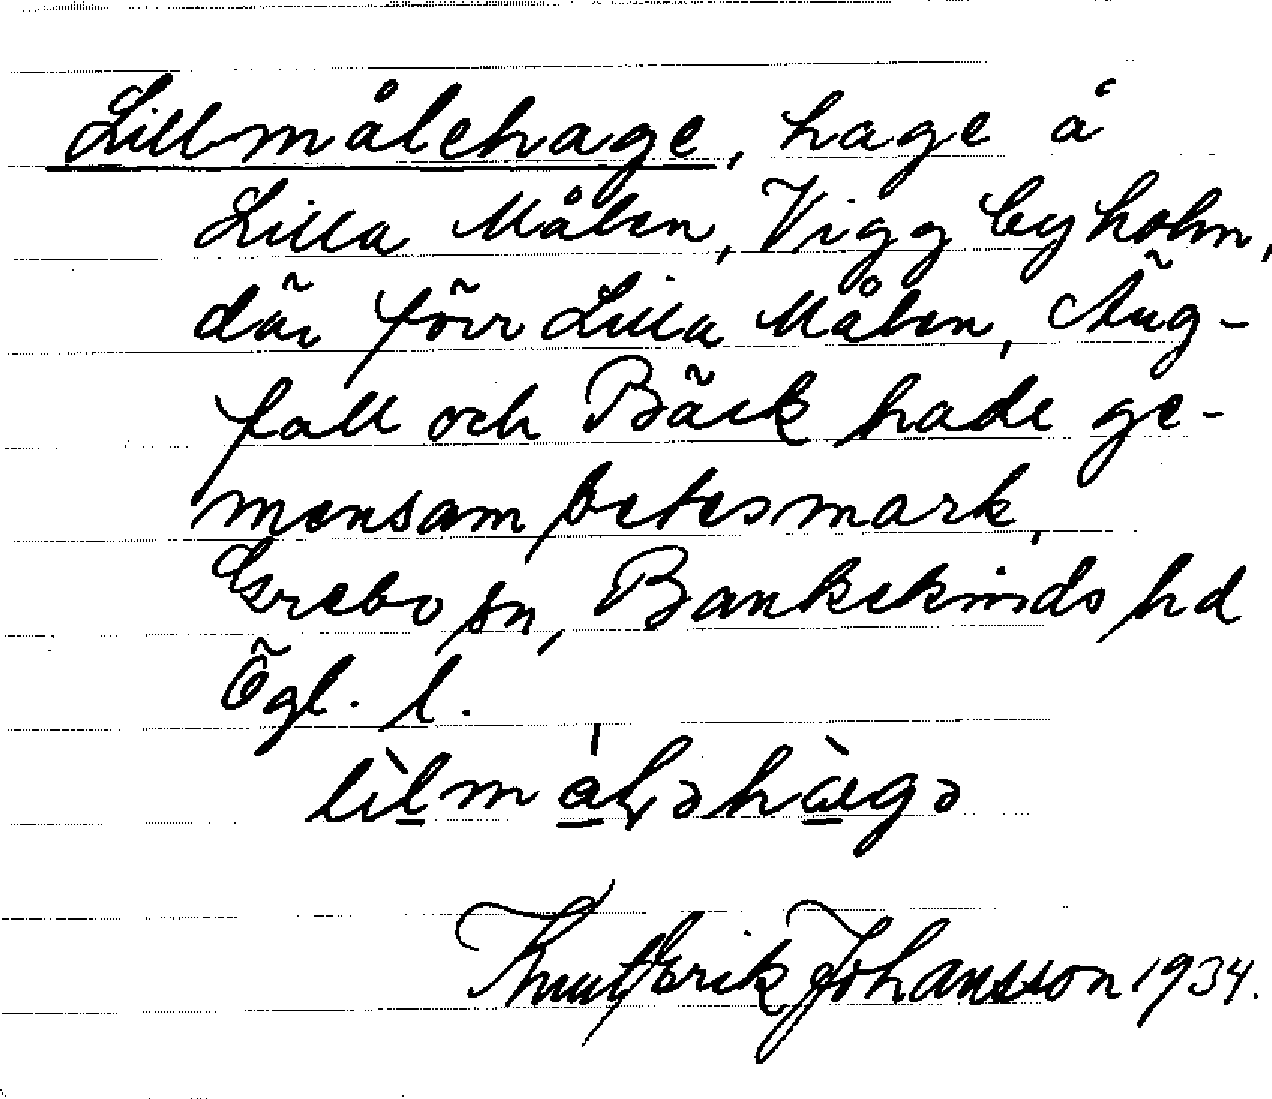 Lillmålehage, hage å
Lilla Målen, Viggbyholm,
där förr Lilla Målen, Äng-
fall och Bäck hade ge-
mensam betesmark,
Grebo sn, Bankekinds hd
Ögl. l.
Knut Erik Johansson 1934.